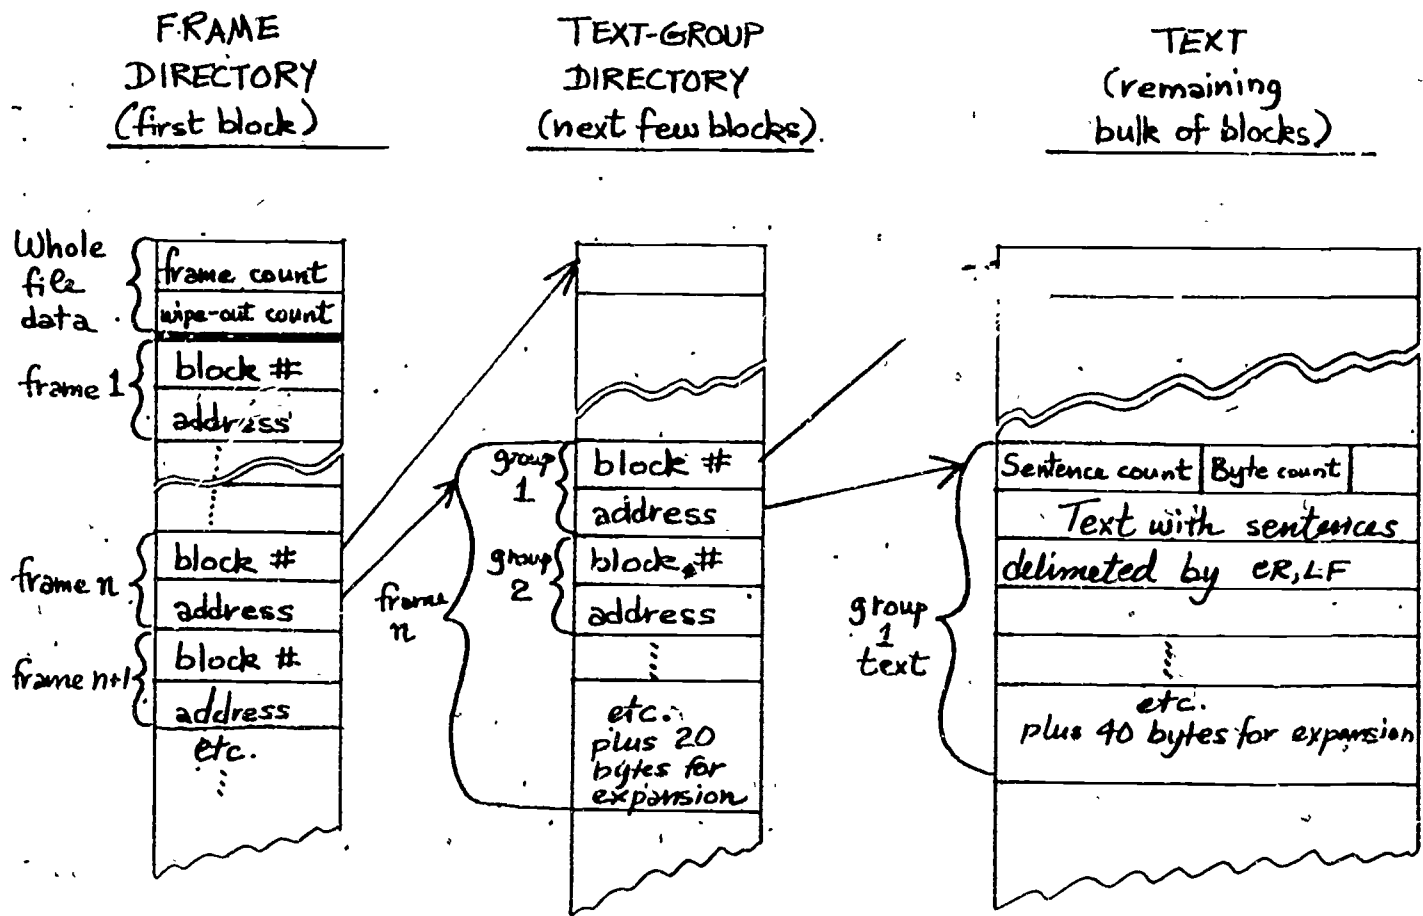 FRAME
DIRECTORY
(first block)
TEXT-GROUP
DIRECTORY
(next few blocks).
TEXT
(remaining
bulk of blocks)
Whole
file
data
frame count
wipe-out count
frame 1
block #
address
frame n
block #
address
frame n+1
block #
address
etc.
frame
n
group
1
block #
address
group
2
block #
address
etc.
plus 20
bytes for
expansion
group
1
text
Sentence count
Byte count
Text with sentences
delimeted by CR,LF
etc.
plus 40 bytes for expansion